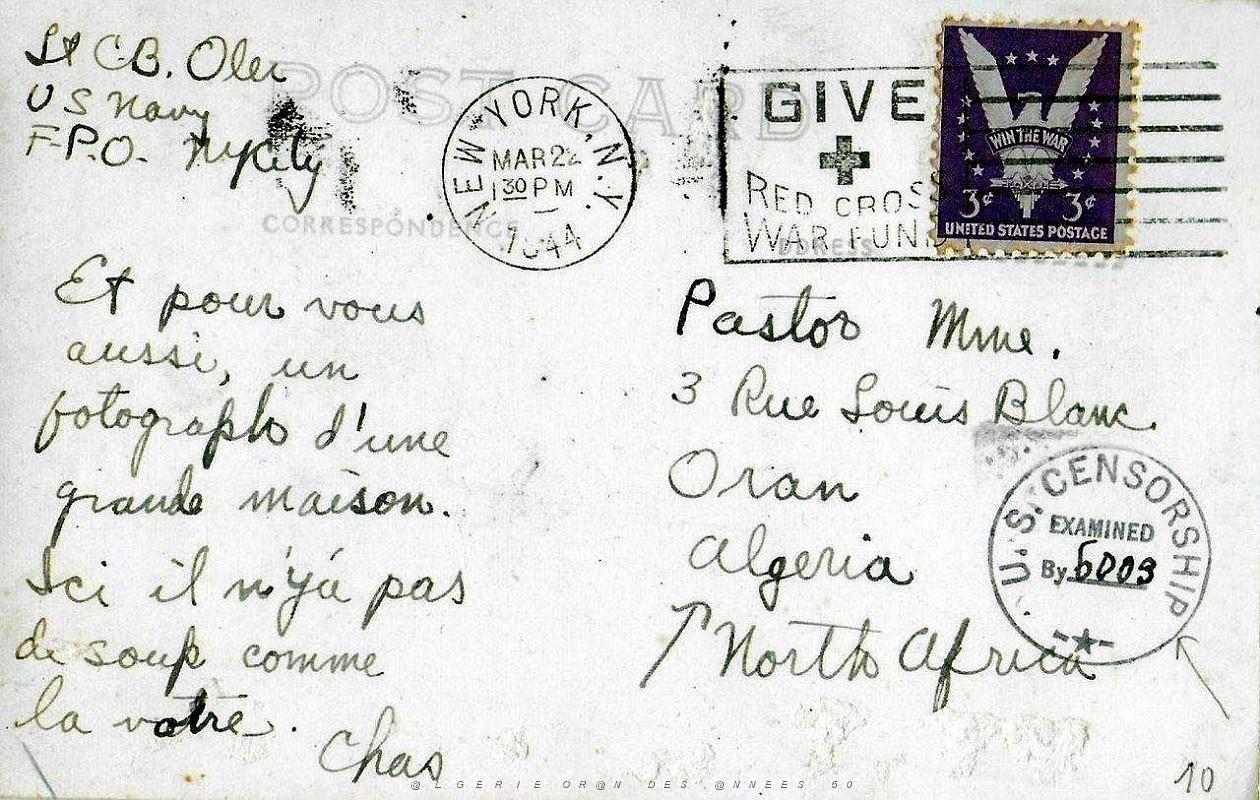 Lt C.B. Oler
US Navy
F.P.O. NyCity
POST CARD
CORRESPONDENCE
ADDRESS
NEW YORK, N.Y.
MAR 22
1 30 PM
1944
GIVE
RED CROSS
WAR FUND
WIN THE WAR
3¢ 3¢
UNITED STATES POSTAGE
Et pour vous
aussi, un
fotograph d'une
grande maison.
Ici il n'ya pas
de soup comme
la votre.
Chas
Pastor Mme.
3 Rue Louis Blanc.
Oran
Algeria
North Africa
U.S. CENSORSHIP
EXAMINED
By 6003
10
@LGERIE OR@N DES @NNEES 50